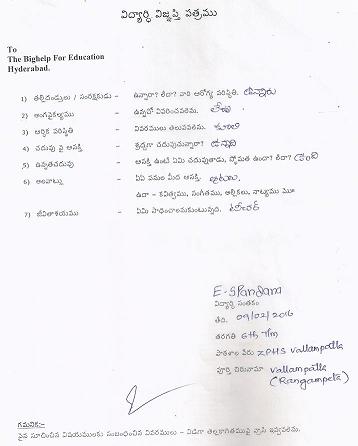 విద్యార్థి విజ్ఞప్తి పత్రము
To
The Bighelp For Education
Hyderabad.
1) తల్లిదండ్రులు / సంరక్షకుడు – ఉన్నారా? లేదా? వారి ఆరోగ్య పరిస్థితి. ఉన్నారు
2) అంగవైకల్యము – ఉన్నచో వివరించవలెను. లేదు
3) ఆర్థిక పరిస్థితి – వివరములు తెలుపవలెను. కూలి
4) చదువు పై ఆసక్తి – శ్రద్ధగా చదువుచున్నారా? ఉన్నది
5) ఉన్నతచదువు – ఆసక్తి ఉంటే ఏమి చదువుతాడు, స్తోమత ఉందా? లేదా?
6) అలవాట్లు – ఏఏ పనుల మీద ఆసక్తి. ఆటలు.
ఉదా – కవిత్వము, సంగీతము, అల్లికలు, నాట్యము మొ
7) జీవితాశయము – ఏమి సాధించాలనుకుంటున్నది. టీచర్
E-SPandana
విద్యార్థి సంతకం
తేది. 09/02/2016
తరగతి 6th T/m
పాఠశాల పేరు ZPHS Vallampatla
పూర్తి చిరునామా Vallampatla
(Rangampeta)
గమనిక:-
పైన సూచించిన విషయములకు సంబంధించిన వివరములు – విడిగా తెల్లకాగితముపై వ్రాసి ఇవ్వవలెను.